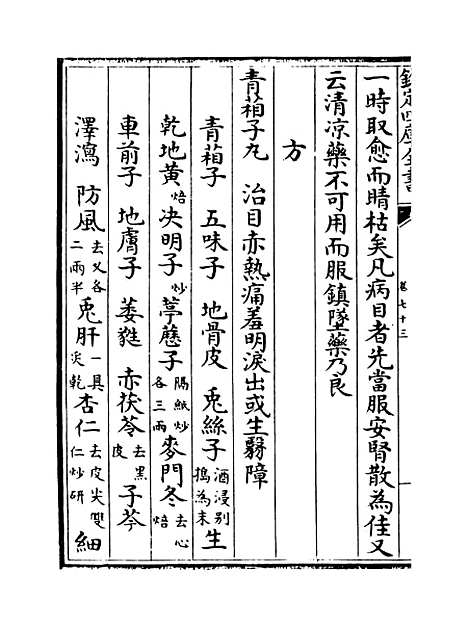 欽定四庫全書
卷七十三
一時取愈而睛枯矣凡病目者先當服安腎散為佳又
云清凉藥不可用而服鎮墜藥乃良
方
青葙子丸　治目赤熱痛羞明淚出或生翳障
青葙子　五味子　地骨皮　兎絲子酒浸别搗為末生
乾地黄焙决明子炒葶藶子隔紙炒各三兩麥門冬去心焙
車前子　地膚子　萎蕤　赤茯苓去黑皮子芩
澤瀉　防風去叉各二兩半兎肝一具炙乾杏仁去皮尖雙仁炒研細